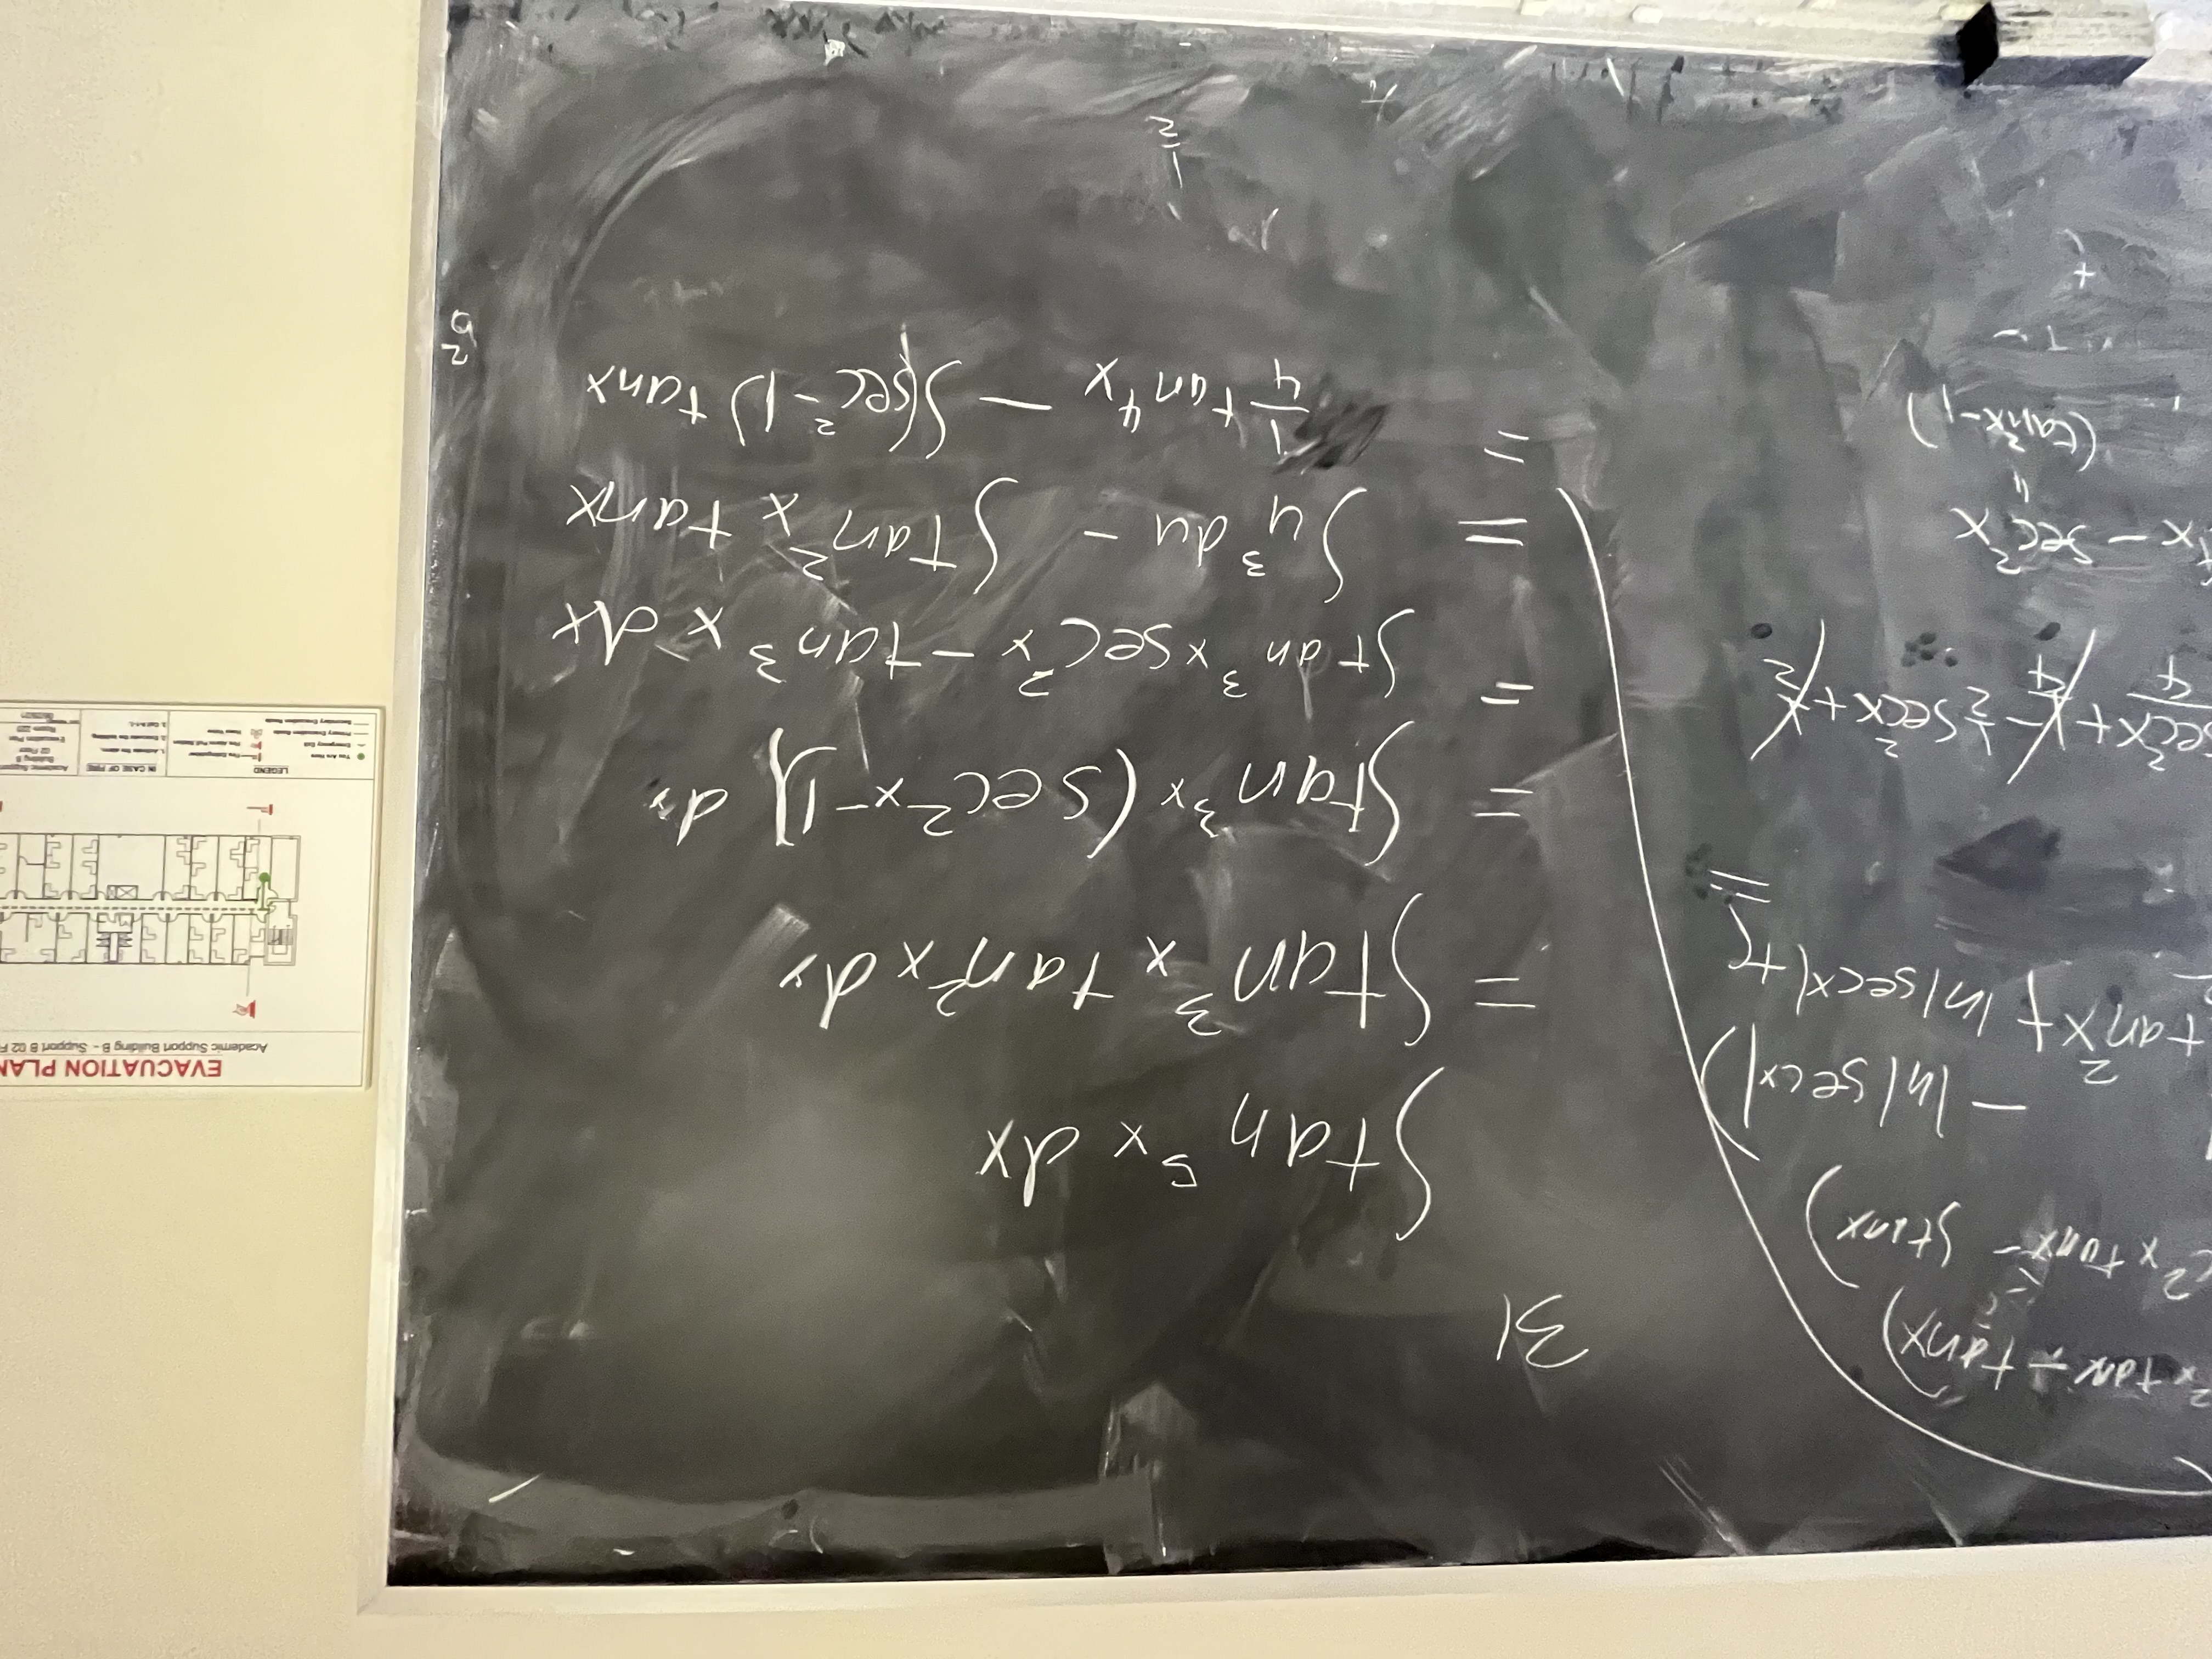 ²x tanx - tanx)
c²x tanx - ∫tanx)
- ln|secx|)
tan²x + ln|secx| + C
sec²x/4 + 1/4 - 1/2 sec²x + 1/2
x - sec²x
"
(tan²x-1)
31
∫tan⁵x dx
= ∫tan³x tan²x dx
= ∫tan³x (sec²x-1) dx
= ∫tan³x sec²x - tan³x dx
= ∫u³du - ∫tan²x tanx
= 1/4 tan⁴x - ∫(sec²-1) tanx
1/2
EVACUATION PLAN
Academic Support Building B - Support B 02 F
LEGEND
You Are Here
Emergency Exit
Primary Evacuation Route
Secondary Evacuation Route
Fire Extinguisher
Fire Alarm Pull Station
IN CASE OF FIRE
1. Activate fire alarm.
2. Evacuate the building.
3. Call 9-1-1.
Academic Support
Building B
02 Floor
Evacuation Plan